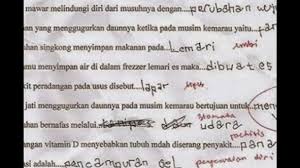 mawar melindungi diri dari musuhnya dengan...perubahan wuj
yang menggugurkan daunnya ketika pada kemarau yaitu...pan
ahan singkong menyimpan makanan pada...lemari umbi
mu menyimpan air di dalam freezer kulkas es maka...dibuat es
kit peradangan pada usus disebut...lapar
jati menggugurkan daunnya pada musim kemarau bertujuan untuk...men
stomata
han bernafas melalui... udara
angan vitamin D menyebabkan tubuh mdah diserang penyakit...pana
asi adalah...pencampuran gel penyesuaian diri